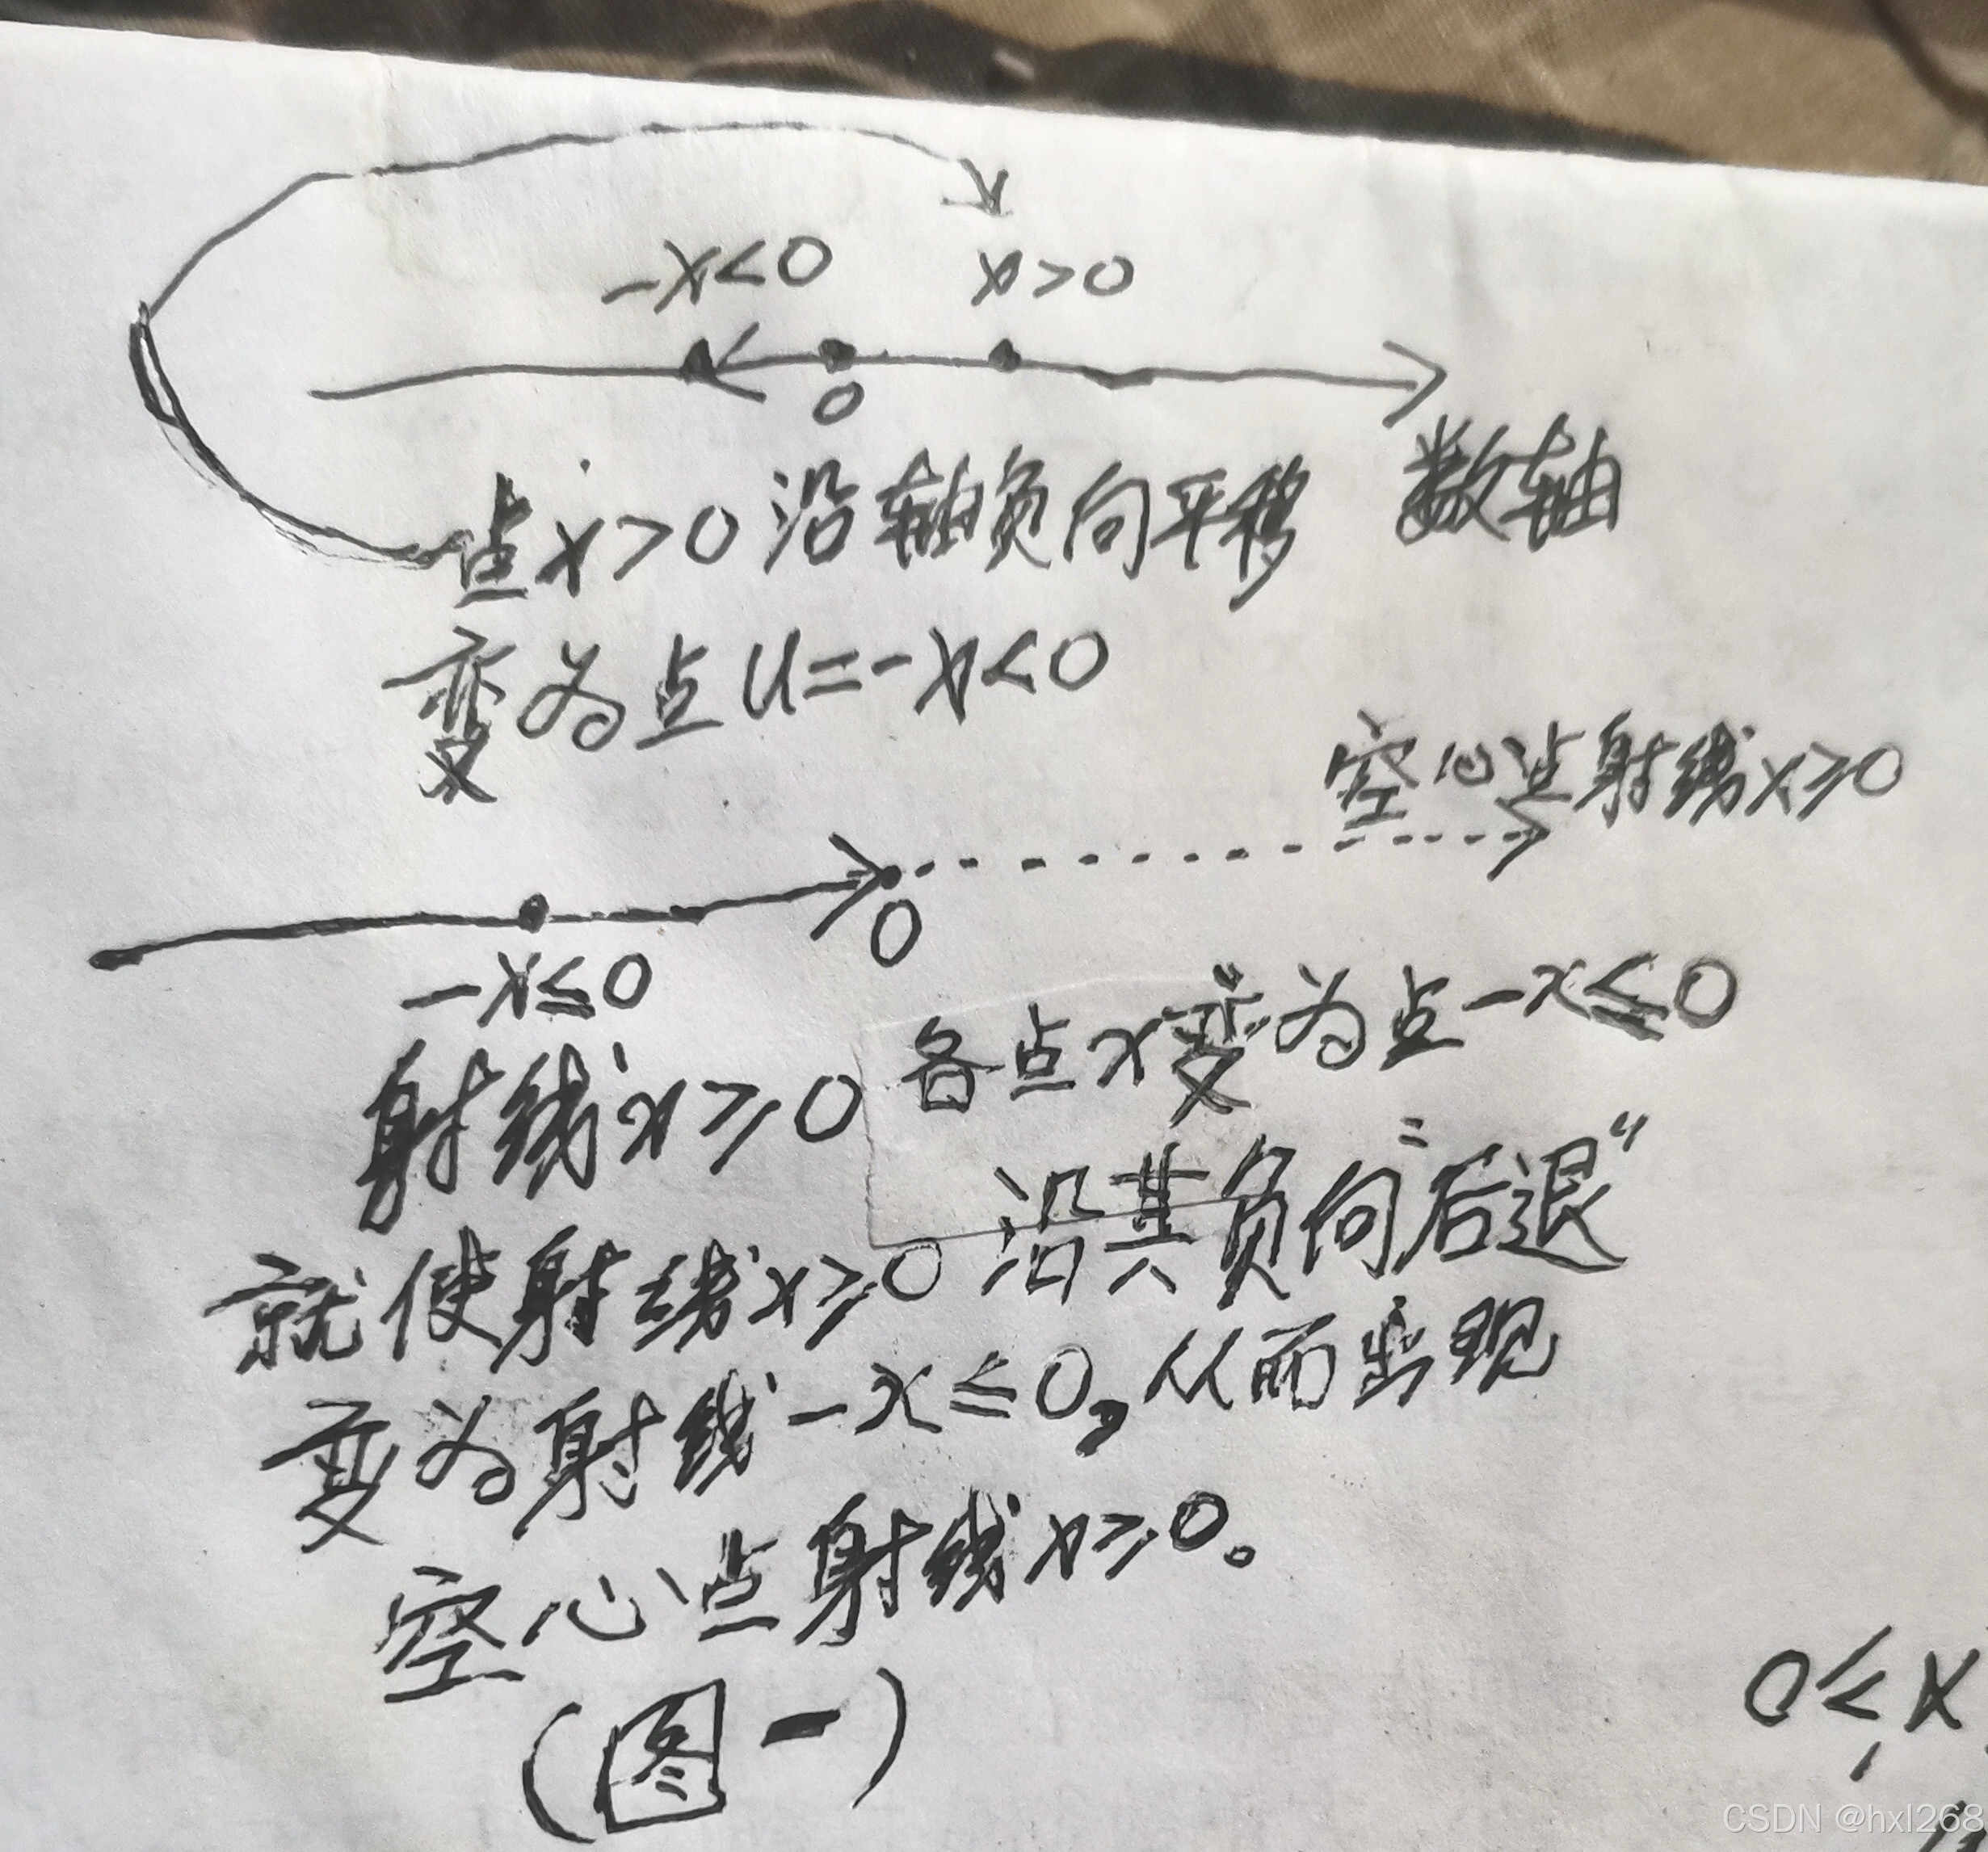 -x<0 x>0
0
数轴
点x>0沿轴负向平移
变为点u=-x<0
空心点射线x≥0
0
-x≤0
射线x≥0各点x变为点-x≤0
就使射线x≥0沿其负向“后退”
变为射线-x≤0,从而出现
空心点射线x≥0。
(图一)
0≤x
CSDN @hxl268